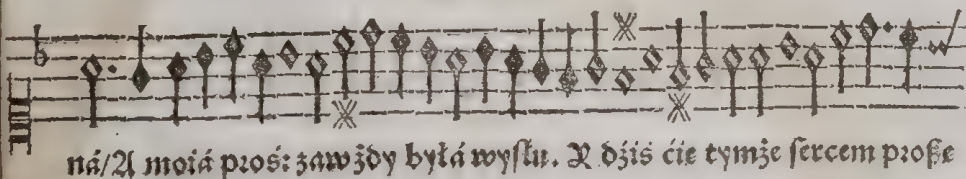 ná/A moiá proś: záwżdy byłá wysłu. X dżiś ćie tymże sercem proßę